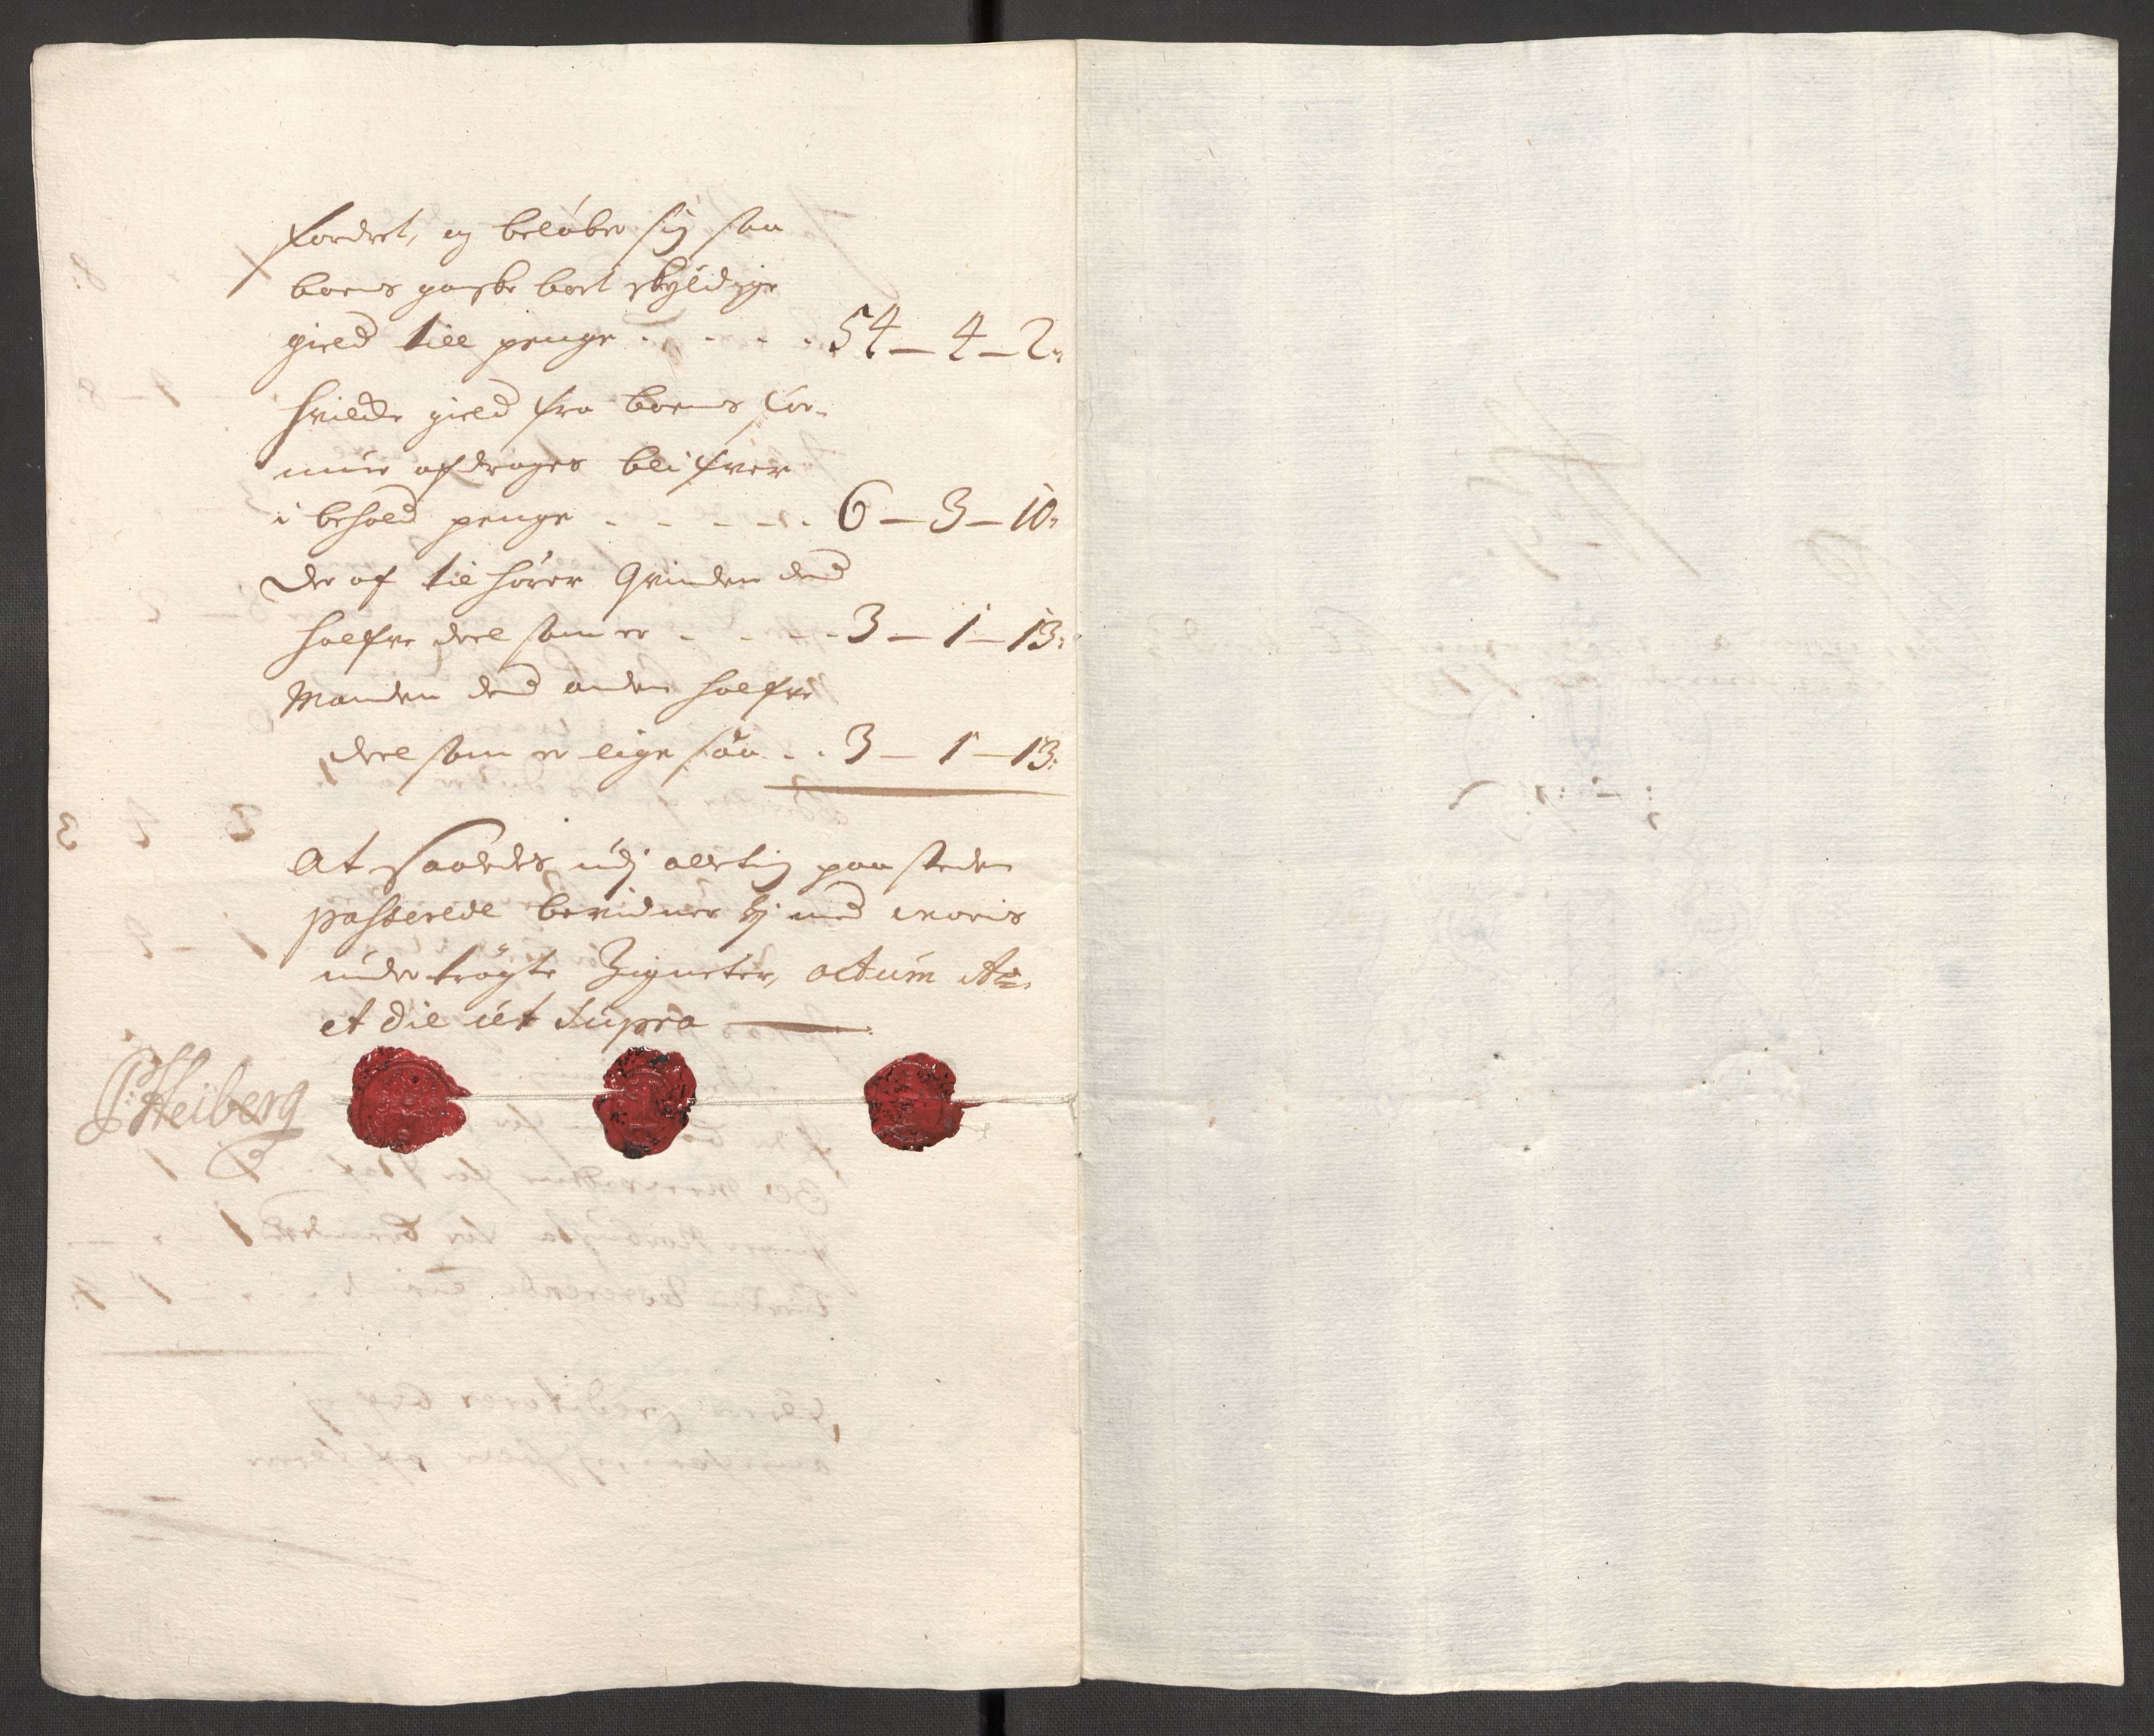 fordret, og beløber sig saa
boens gandske bort skyldige
gield till penge . . . . 54 – 4 – 2"
hvilcke gield fra boens for-
mue afdrages blifver
i behold penge . . . . . 6 – 3 – 10"
der af tilhører Qvinden den
halfve deel som er . . . . 3 – 1 – 13:
Manden dend anden halfve
deel som er lige saa . . 3 – 1 – 13:
At saaledes udj allting paa steden
passerede bevidner vj med voris
undertrøgte Zigneter, actum Ao.
et die ut supra
P: Heiberg